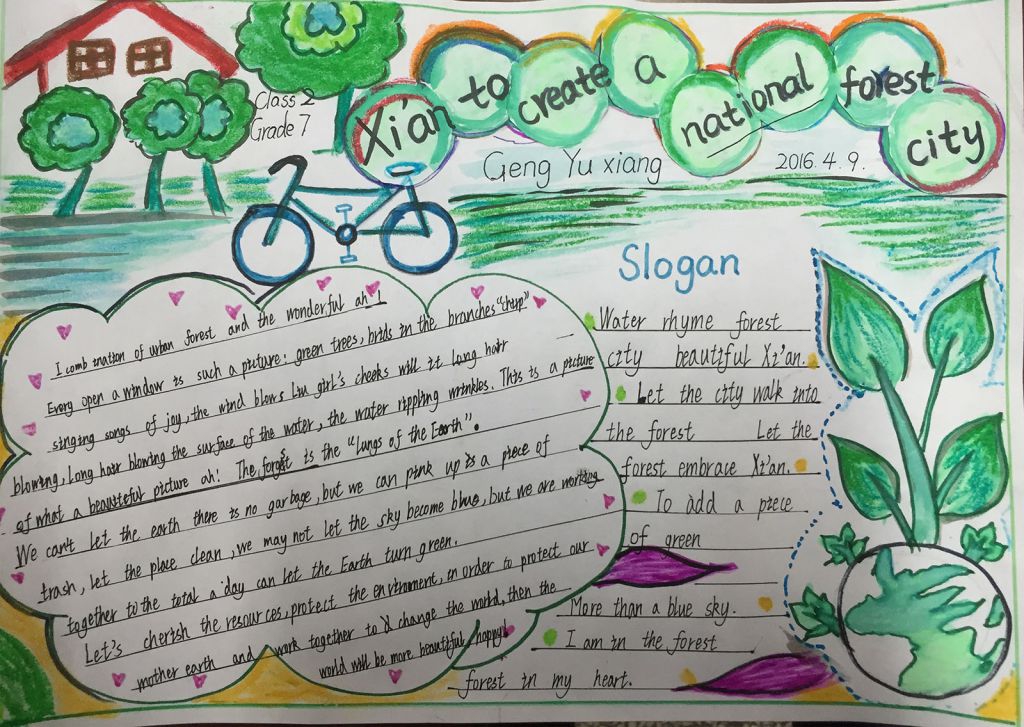 Class 2
Grade 7
Xi'an to create a national forest city
Geng Yu xiang
2016. 4. 9.
I comb ination of urban forest and the wonderful ah !
Every open a window is such a picture: green trees, brids in the branches "chirp"
singing songs of joy, the wind blows Liu girl's cheeks will it long hair
blowing, long hair blowing the surface of the water, the water rippling wrinkles. This is a picture
of what a beautiful picture ah! The forest is the "lungs of the Earth".
We can't let the earth there is no garbage, but we can pink up is a piece of
trash, let the place clean, we may not let the sky become blue, but we are working
together to the total a day can let the Earth turn green.
Let's cherish the resources, protect the environment, in order to protect our
mother earth and work together to change the world, then the
world will be more beautiful happy!
Slogan
Water rhyme forest
city beautiful Xi'an.
Let the city walk into
the forest Let the
forest embrace Xi'an.
To add a piece
of green
More than a blue sky.
I am in the forest
forest in my heart.